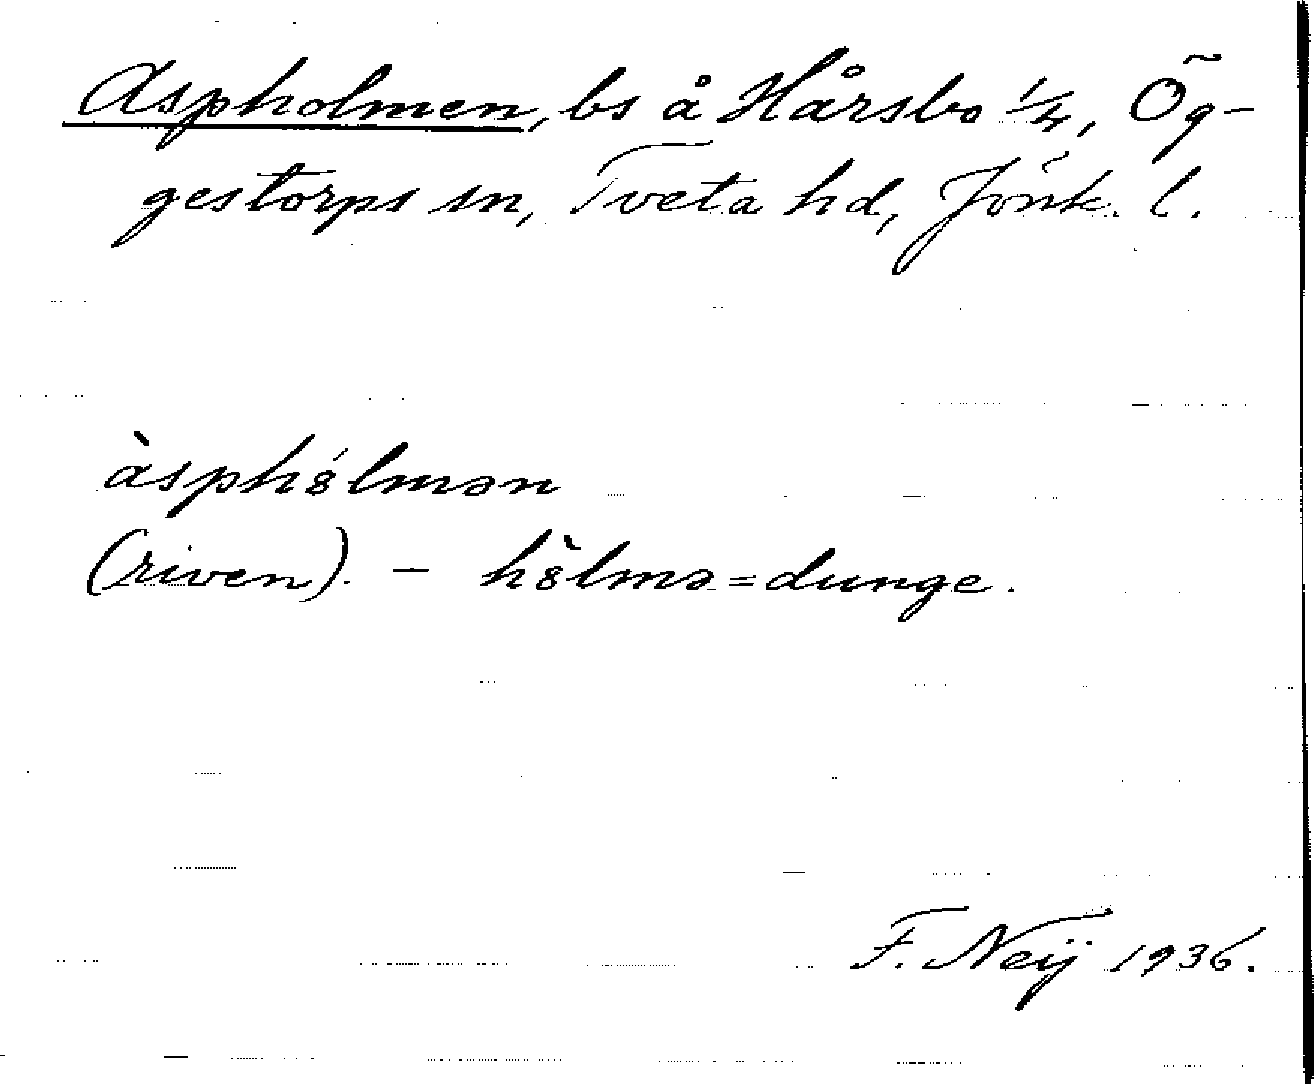 Aspholmen, bs å Hårsbo 1/4, Ög-
gestorps sn, Tveta hd, Jönk. l.
àsph8́lmən
(riven). – h8̀lmə = dunge.
F. Neij 1936.